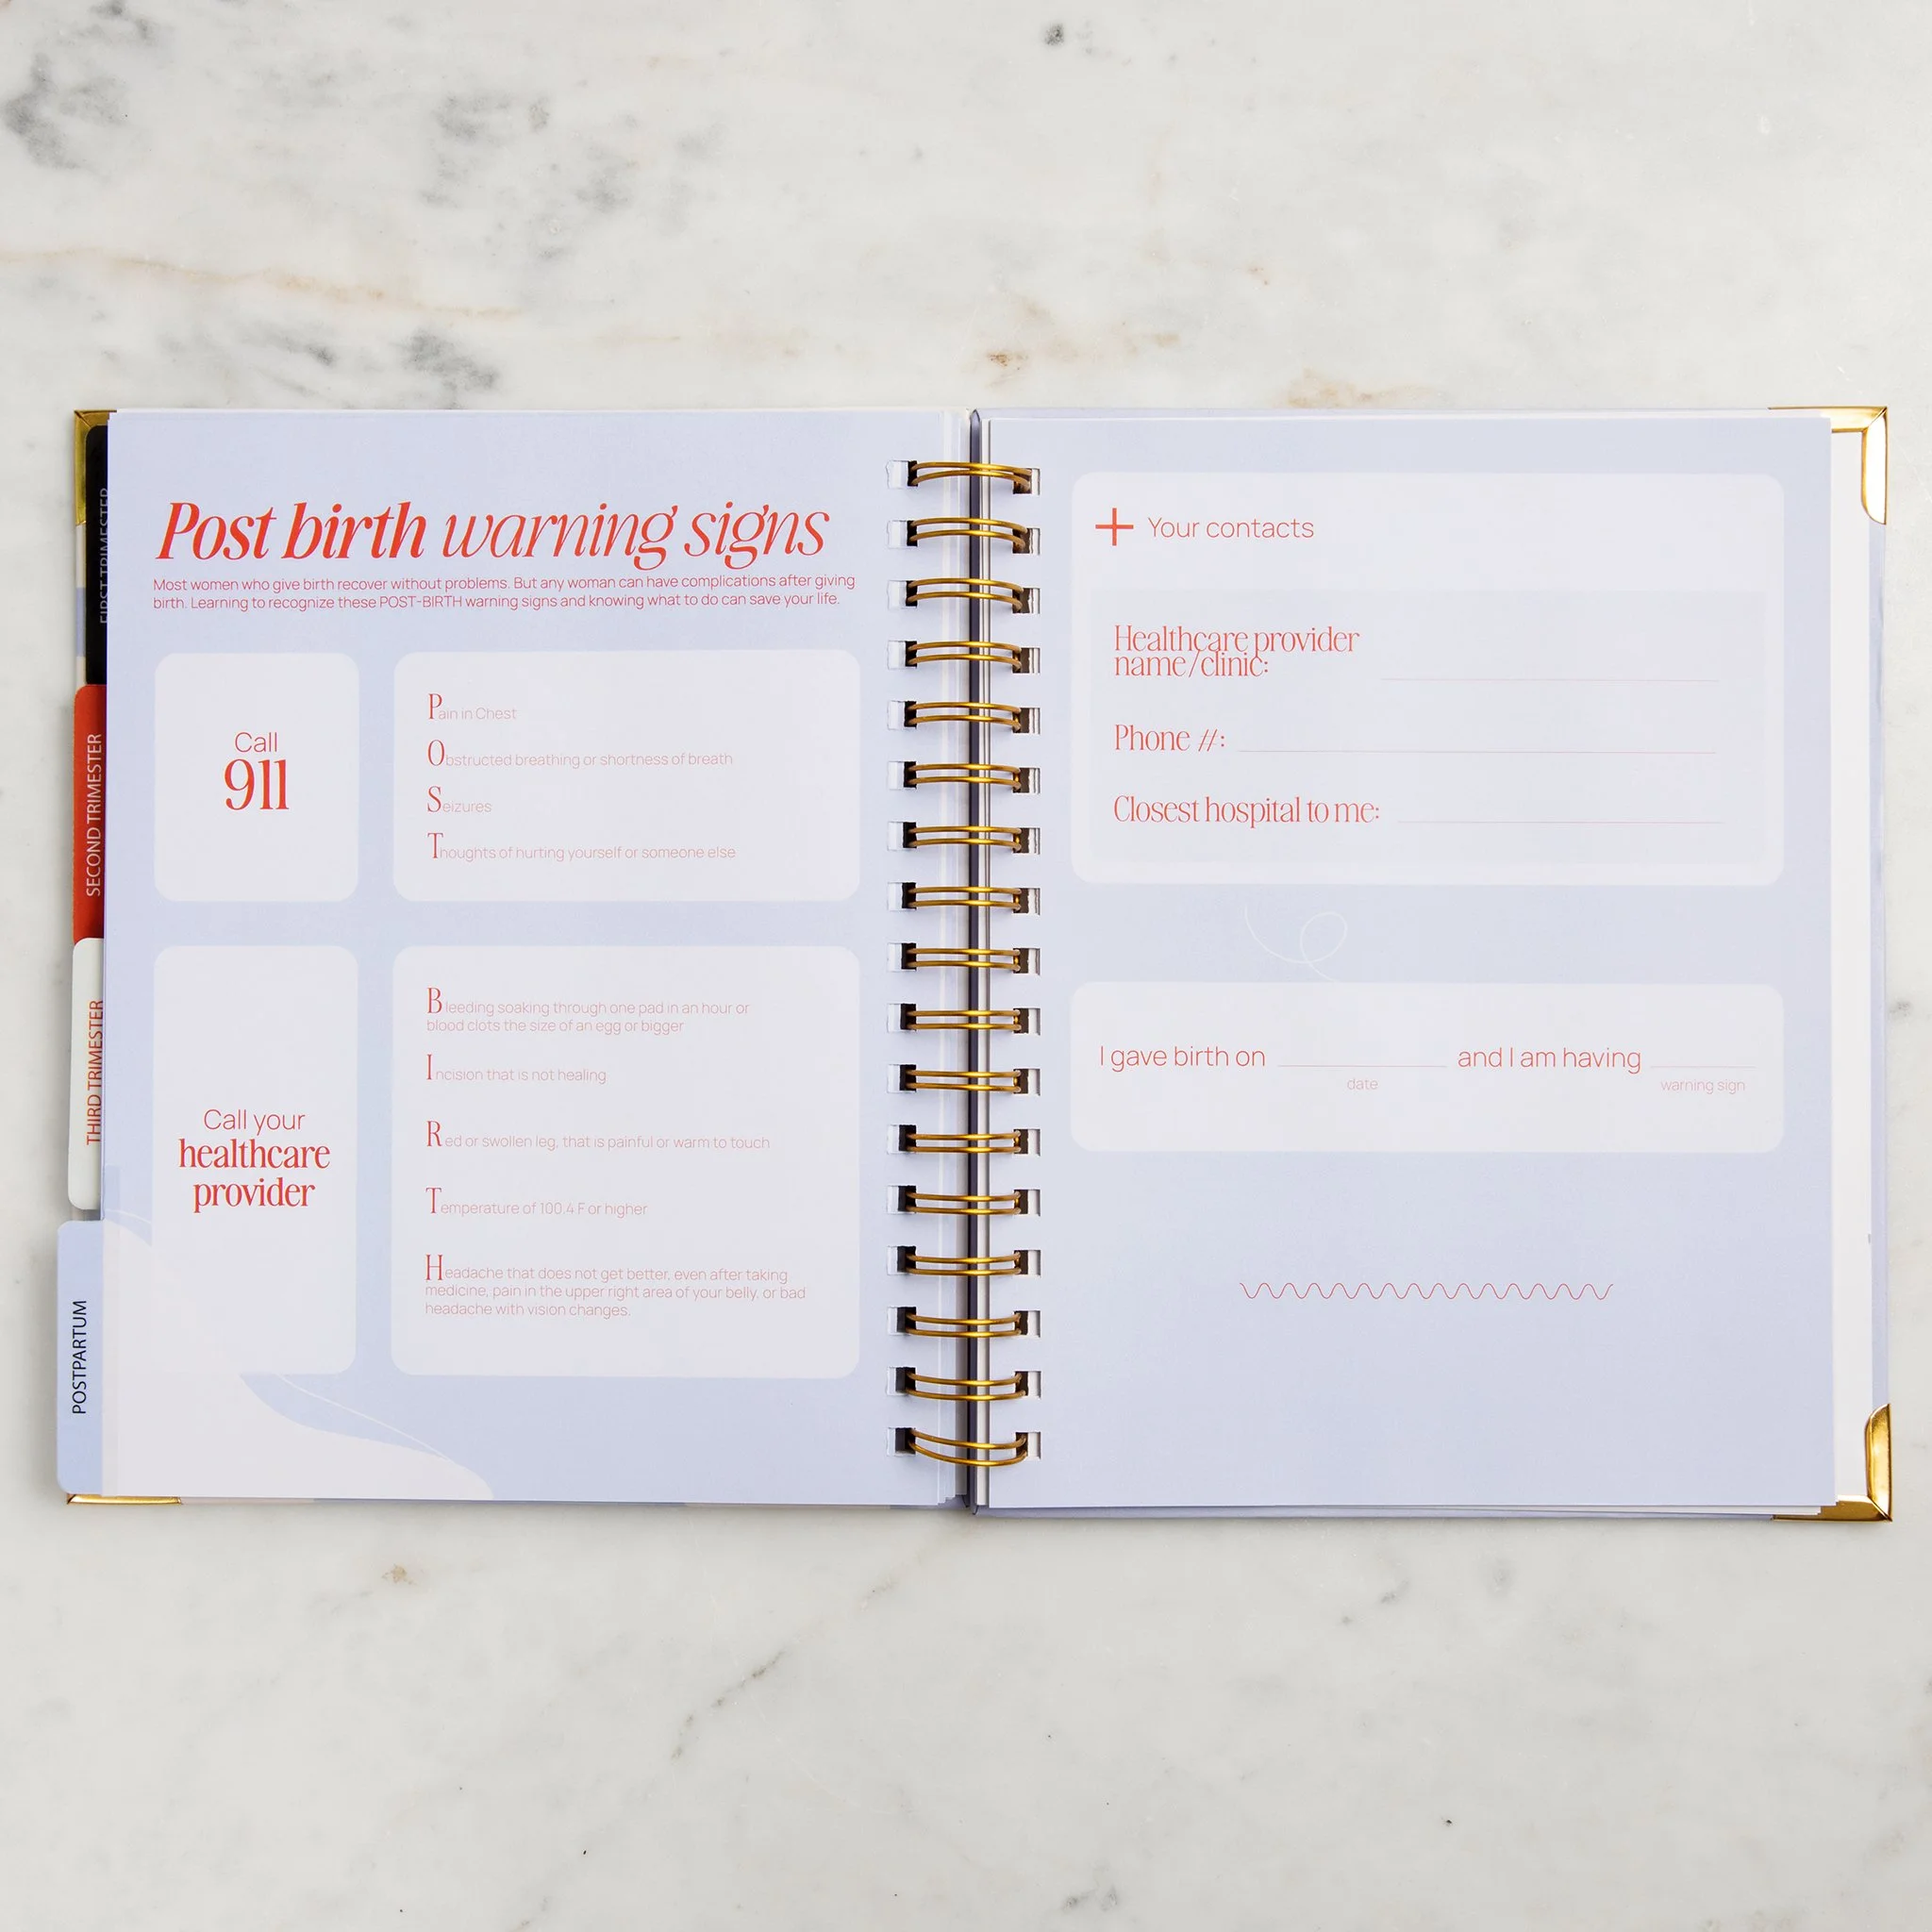 FIRST TRIMESTER
SECOND TRIMESTER
THIRD TRIMESTER
POSTPARTUM
Post birth warning signs
Most women who give birth recover without problems. But any woman can have complications after giving
birth. Learning to recognize these POST-BIRTH warning signs and knowing what to do can save your life.
Call
911
Pain in Chest
Obstructed breathing or shortness of breath
Seizures
Thoughts of hurting yourself or someone else
Call your
healthcare
provider
Bleeding soaking through one pad in an hour or
blood clots the size of an egg or bigger
Incision that is not healing
Red or swollen leg, that is painful or warm to touch
Temperature of 100.4 F or higher
Headache that does not get better, even after taking
medicine, pain in the upper right area of your belly, or bad
headache with vision changes.
+ Your contacts
Healthcare provider
name/clinic:
Phone #:
Closest hospital to me:
I gave birth on and I am having
date warning sign